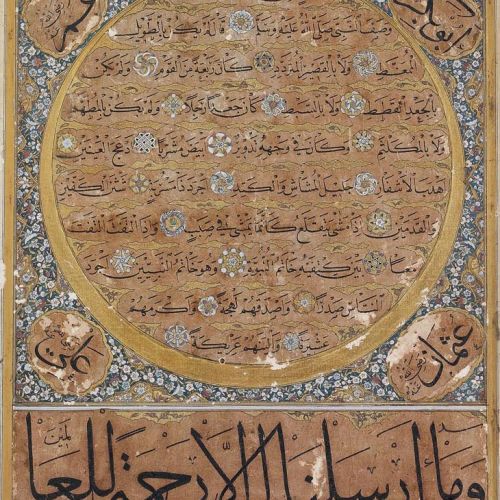 عمر
وصف النبي صلى الله عليه وسلم قال لم يكن بالطويل
الممغط ولا بالقصير المتردد كان ربعة من القوم ولم يكن
بالجعد القطط ولا بالسبط كان جعدا رجلا ولم يكن بالمطهم
ولا بالمكلثم وكان في وجهه تدوير ابيض مشرب ادعج العينين
اهدب الاشفار جليل المشاش والكتد اجرد ذو مسربة شثن الكفين
والقدمين اذا مشى يتقلع كانما يمشي في صبب واذا التفت التفت
معا بين كتفيه خاتم النبوة وهو خاتم النبيين اجود
الناس صدرا واصدقهم لهجة واكرمهم
عشيرة والينهم عريكة
عثمان
علي
وما ارسلناك الا رحمة للعالمين